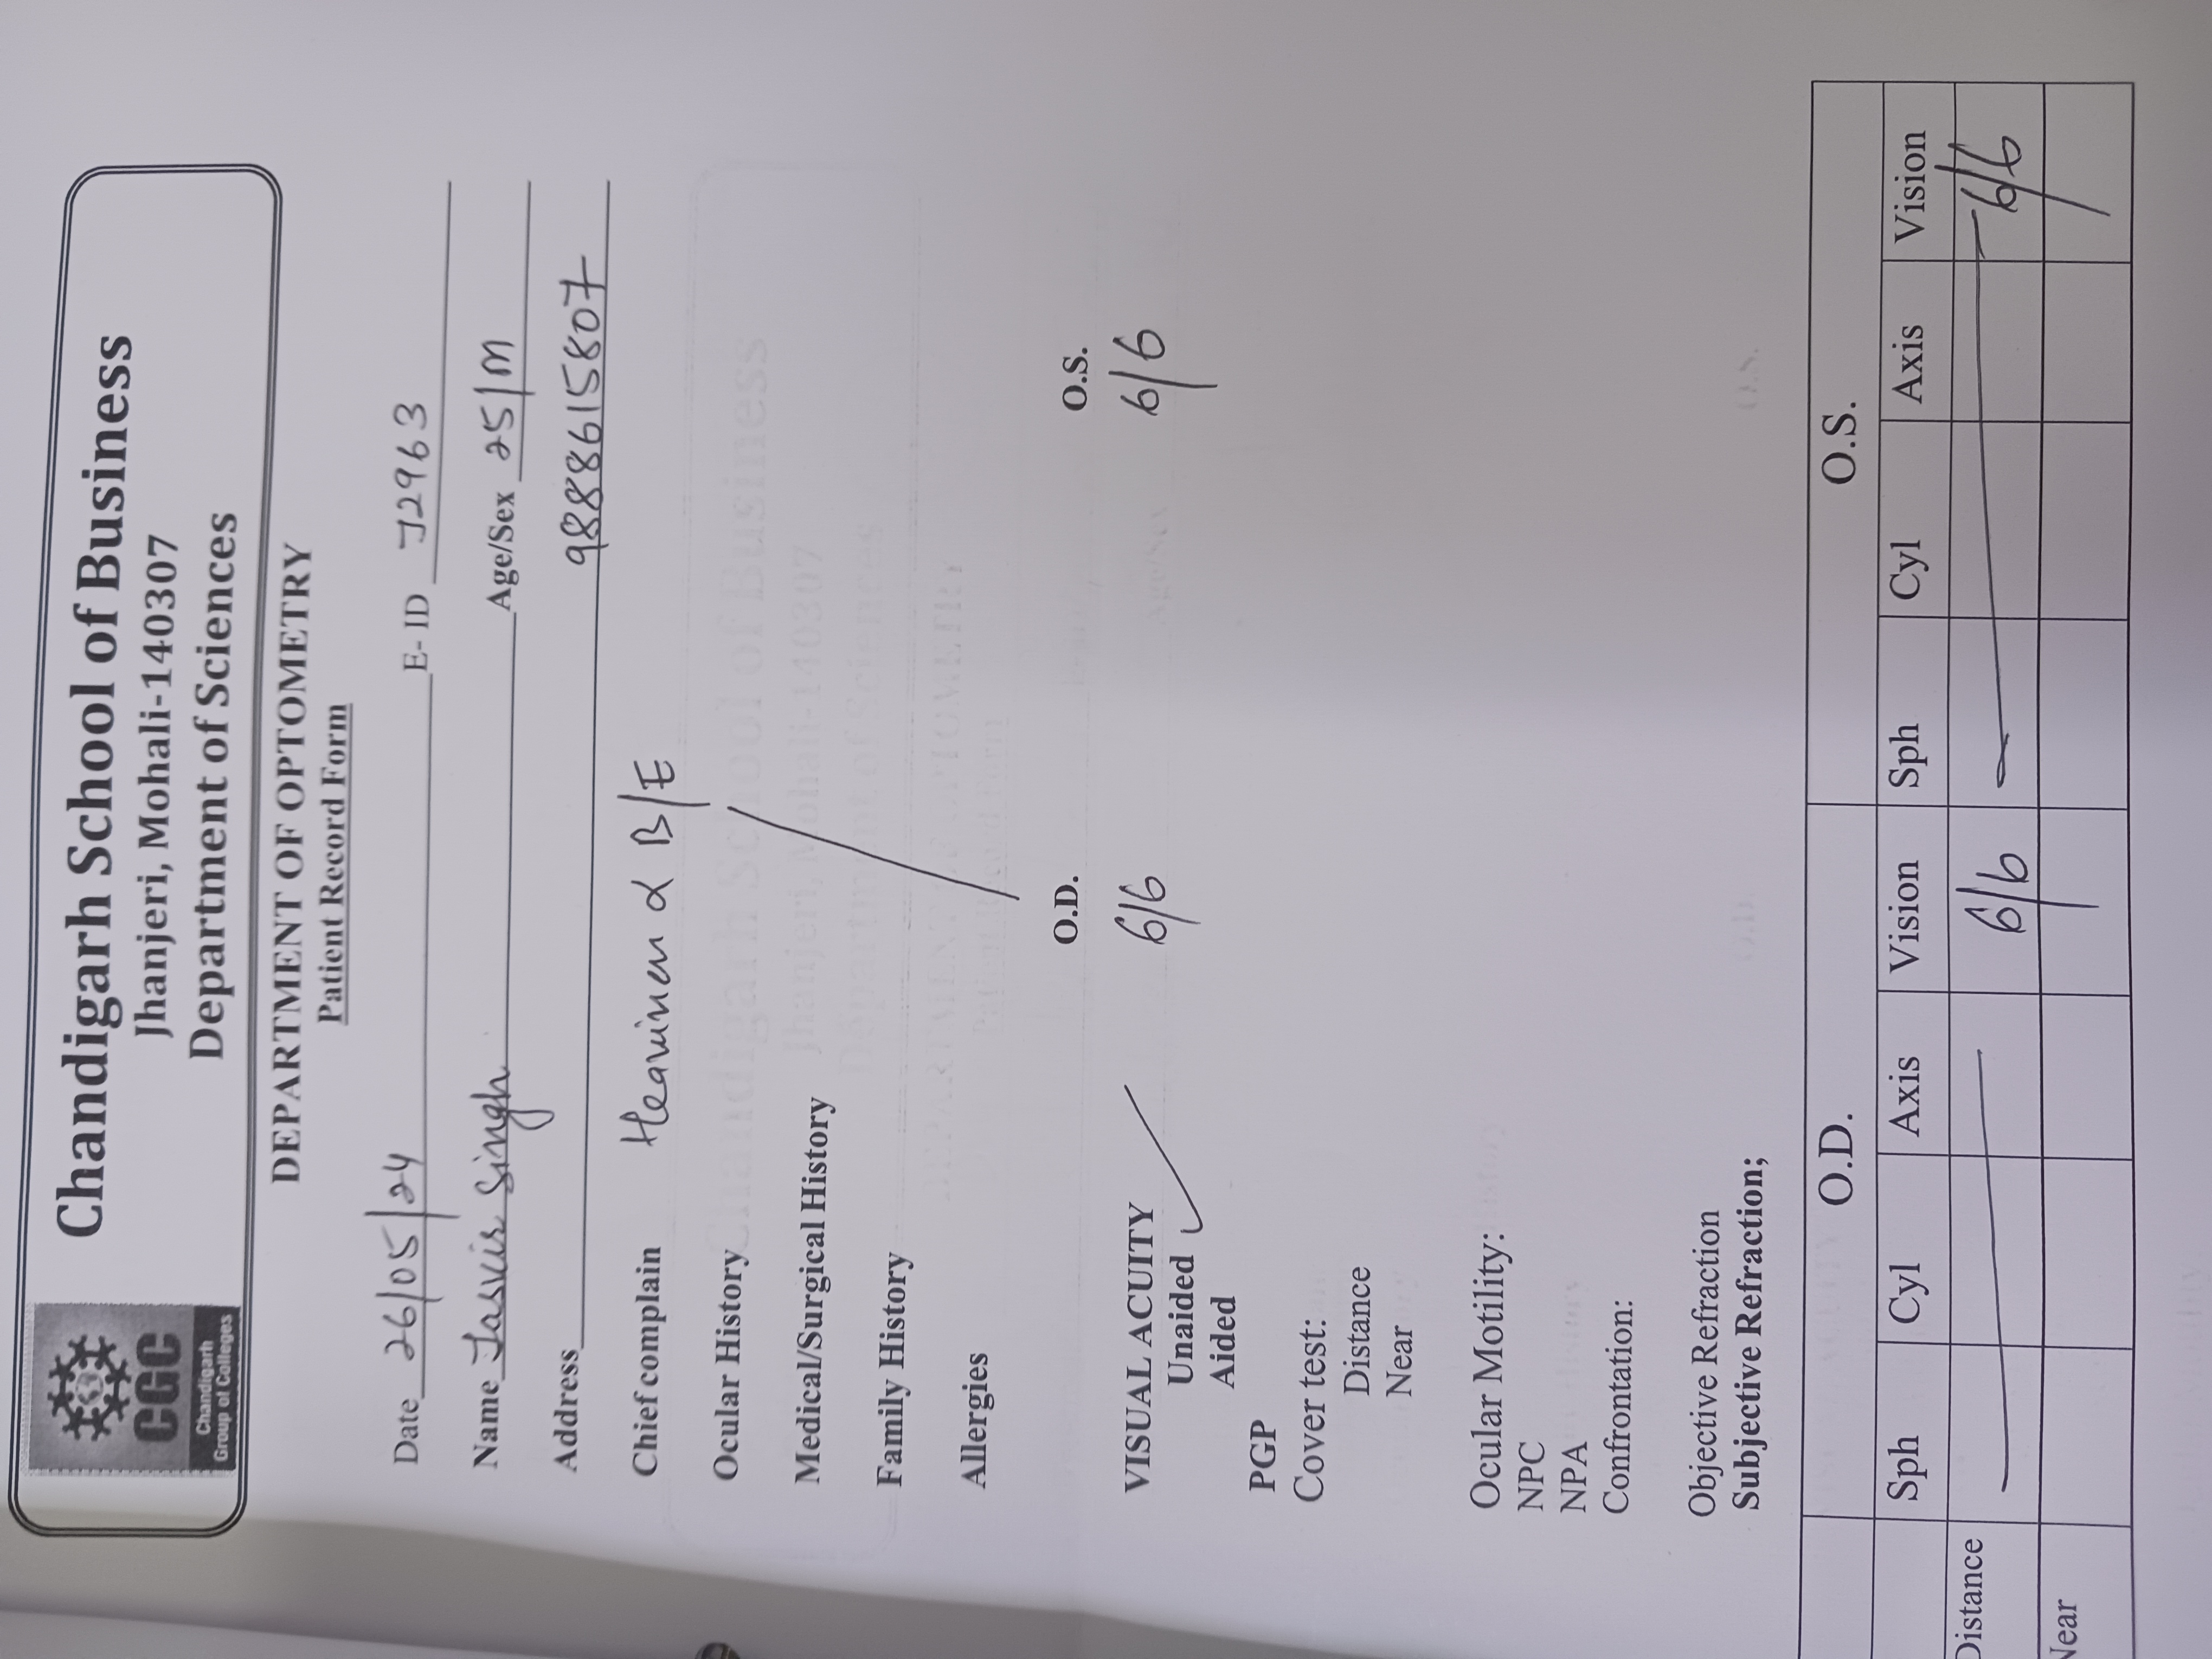 CGC
Chandigarh
Group of Colleges
Chandigarh School of Business
Jhanjeri, Mohali-140307
Department of Sciences
DEPARTMENT OF OPTOMETRY
Patient Record Form
Date 26/05/24 E- ID J2963
Name Jasvir Singh Age/Sex 25/M
Address 9888615807
Chief complain B/E
Ocular History
Medical/Surgical History
Family History
Allergies
O.D. O.S.
VISUAL ACUITY 6/6 6/6
Unaided ✓
Aided
PGP
Cover test:
Distance
Near
Ocular Motility:
NPC
NPA
Confrontation:
Objective Refraction
Subjective Refraction;
O.D. O.S.
Sph Cyl Axis Vision Sph Cyl Axis Vision
Distance 6/6 6/6
Near